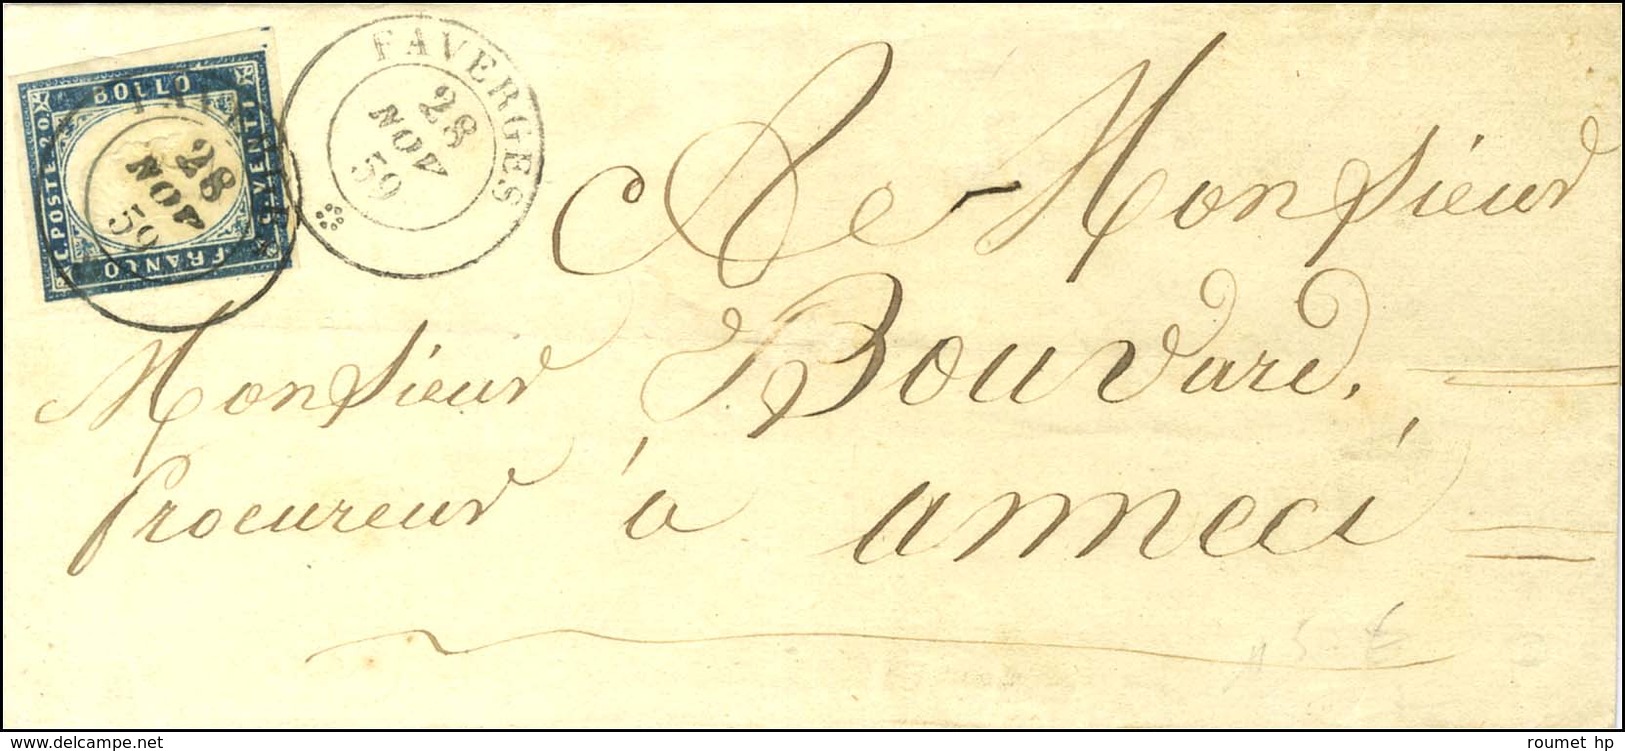 BOLLO
C. POSTE 20.
VENTI
FRANCO
28
NOV
59
FAVERGES
28
NOV
59
A Monsieur
Monsieur Bouvard,
Procureur à anneci
www.delcampe.net
roumet hp